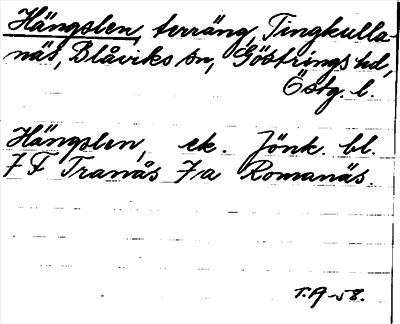 Hängslen, terräng, Tingkulla-
näs, Blåviks sn, Göstrings hd,
Östg. l.
Hängslen, ek. Jönk. bl.
7 F Tranås 7a Romanäs.
T.A-58.